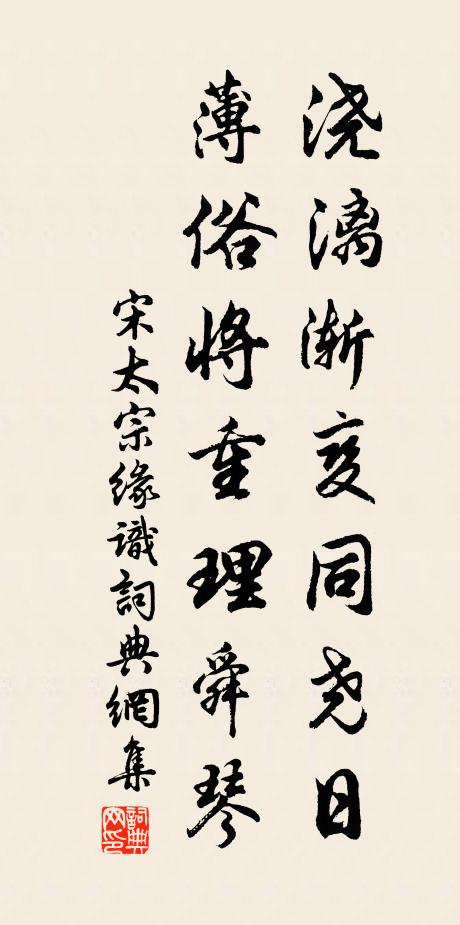 浇漓渐变同尧日
薄俗将重理舜琴
宋太宗缘識詞典網集
詞典网印